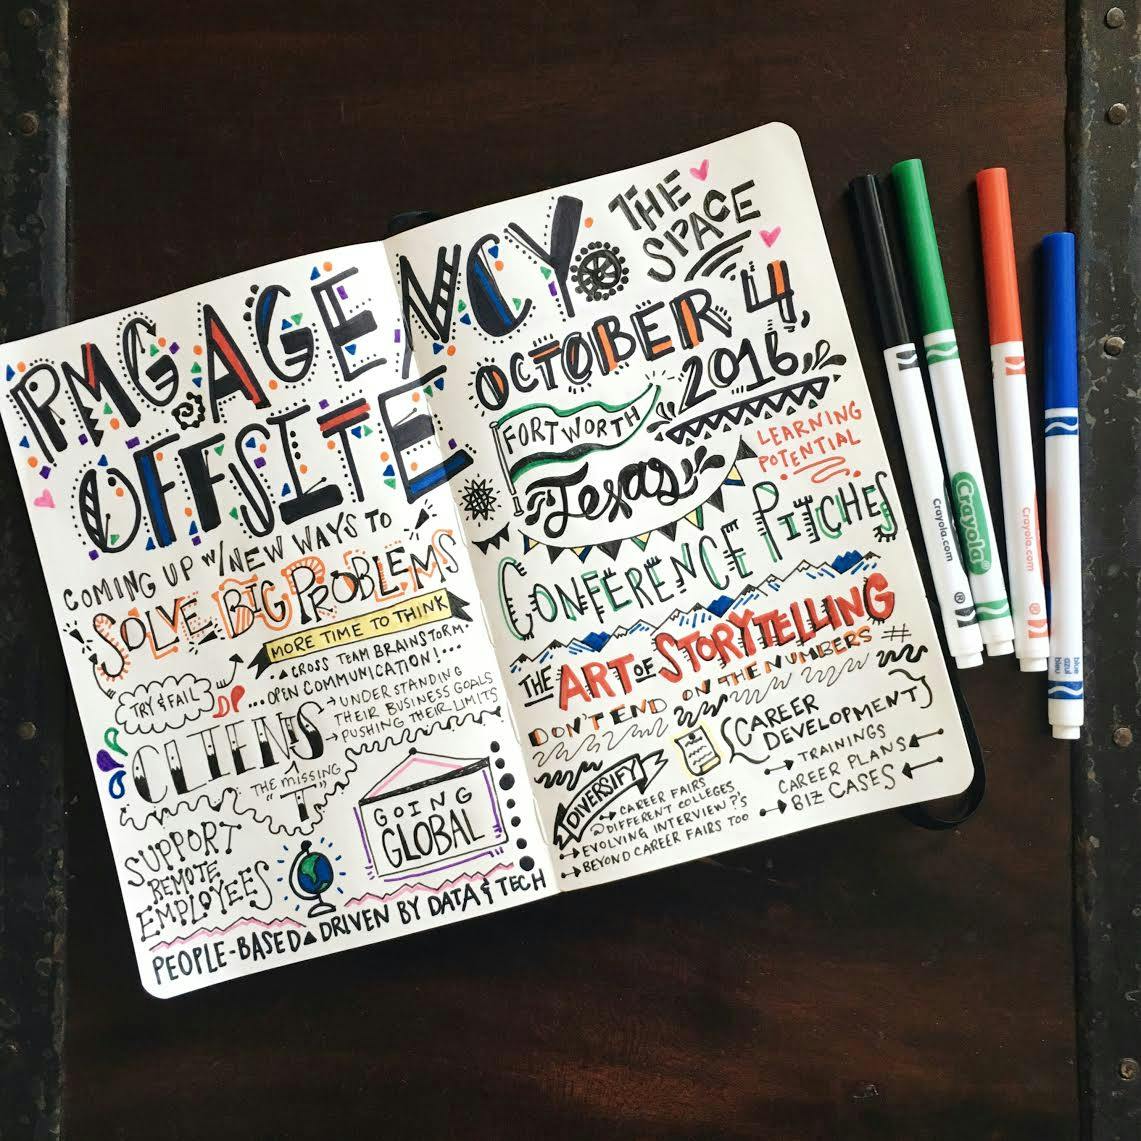 PMG AGENCY
OFFSITE
THE
SPACE
OCTOBER 4,
2016
FORT WORTH
Texas
COMING UP W/NEW WAYS TO
SOLVE BIG PROBLEMS
MORE TIME TO THINK
CROSS TEAM BRAINSTORM
...OPEN COMMUNICATION!...
TRY & FAIL
CLIENTS
→ UNDERSTANDING
THEIR BUSINESS GOALS
→ PUSHING THEIR LIMITS
THE MISSING
"T"
SUPPORT
REMOTE
EMPLOYEES
GOING
GLOBAL
PEOPLE-BASED DRIVEN BY DATA & TECH
LEARNING
POTENTIAL
CONFERENCE PITCHES
THE ART OF STORYTELLING
DON'T END ON THE NUMBERS #
DIVERSIFY
→ CAREER FAIRS
DIFFERENT COLLEGES
→ EVOLVING INTERVIEW ?'S
→ BEYOND CAREER FAIRS TOO
CAREER
DEVELOPMENT
→ TRAININGS
CAREER PLANS ←
→ BIZ CASES ←
Crayola.com
®
Crayola®
Crayola.com
®
blue
azul
bleu